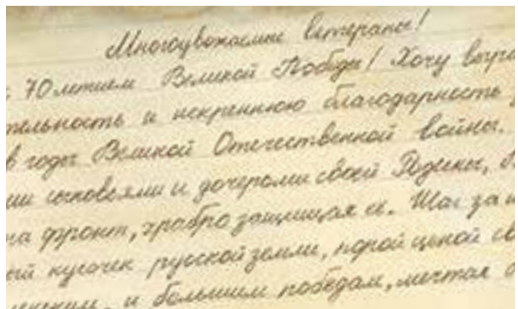 Многоуважаемые ветераны!
70летием Великой Победы! Хочу выра
тельность и искреннюю благодарность
в годы Великой Отечественной войны.
ми сыновьями и дочерями своей Родины,
на фронт, храбро защищая её. Шаг за
ый кусочек русской земли, порой ценой св
и большим победам, мечтая